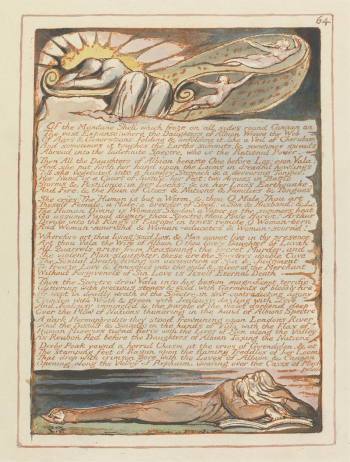 64
Of the Mundane Shell which froze on all sides round Canaan on
The vast Expanse: where the Daughters of Albion Weave the Web
Of Ages & Generations, folding & unfolding it, like a Veil of Cherubim
And sometimes it touches the Earths summits, & sometimes spreads
Abroad into the Indefinite Spectre, who is the Rational Power.
Then All the Daughters of Albion became One before Los: even Vala!
And she put forth her hand upon the Looms in dreadful howlings
Till she vegetated into a hungry Stomach & a devouring Tongue.
Her Hand is a Court of Justice, her Feet: two Armies in Battle
Storms & Pestilence: in her Locks: & in her Loins Earthquake.
And Fire. & the Ruin of Cities & Nations & Families & Tongues
She cries: The Human is but a Worm, & thou O Male: Thou art
Thyself Female, a Male: a breeder of Seed: a Son & Husband: & Lo.
The Human Divine is Womans Shadow, a Vapor in the summers heat
Go assume Papal dignity thou Spectre, thou Male Harlot! Arthur
Divide into the Kings of Europe in times remote O Woman-born
And Woman-nourishd & Woman-educated & Woman-scorn'd!
Wherefore art thou living? said Los, & Man cannot live in thy presence
Art thou Vala the Wife of Albion O thou lovely Daughter of Luvah
All Quarrels arise from Reasoning. the secret Murder, and
The violent Man-slaughter. these are the Spectres double Cave
The Sexual Death living on accusation of Sin & Judgment
To freeze Love & Innocence into the gold & silver of the Merchant
Without Forgiveness of Sin Love is Itself Eternal Death
Then the Spectre drew Vala into his bosom magnificent terrific
Glittering with precious stones & gold, with Garments of blood & fire
He wept in deadly wrath of the Spectre, in self-contradicting agony
Crimson with Wrath & green with Jealousy dazling with Love
And Jealousy immingled & the purple of the violet darkend deep
Over the Plow of Nations thundring in the hand of Albions Spectre
A dark Hermaphrodite they stood frowning upon Londons River
And the Distaff & Spindle in the hands of Vala with the Flax of
Human Miseries turnd fierce with the Lives of Men along the Valley
As Reuben fled before the Daughters of Albion Taxing the Nations
Derby Peak yawnd a horrid Chasm at the Cries of Gwendolen, & at
The stamping feet of Ragan upon the flaming Treddles of her Loom
That drop with crimson gore with the Loves of Albion & Canaan
Opening along the Valley of Rephaim, weaving over the Caves of